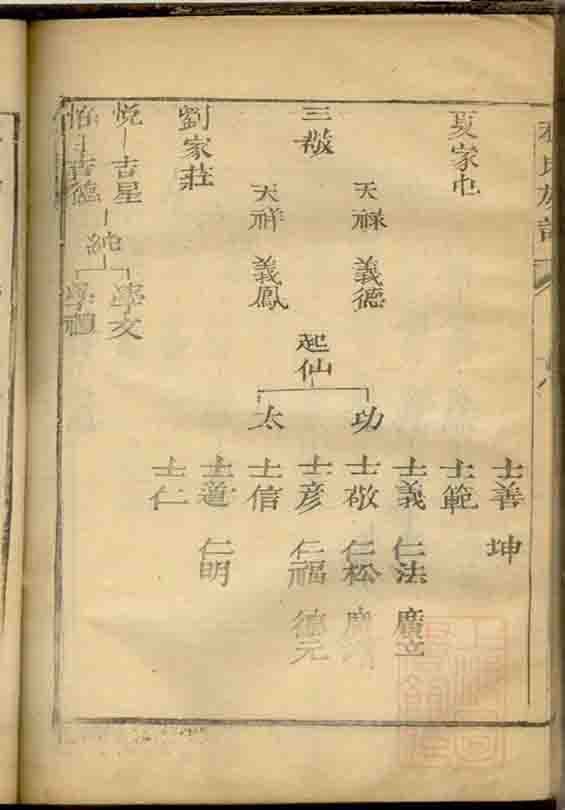 夏家屯
三敬
天祿 義德
天祥 義鳳
起仙
功
太
士善 坤
士範
士義 仁法 廣立
士敬 仁松
士彥 仁福 德元
士信
士道 仁明
士仁
劉家莊
悅 吉星
怡 吉德
純
學文
學禮